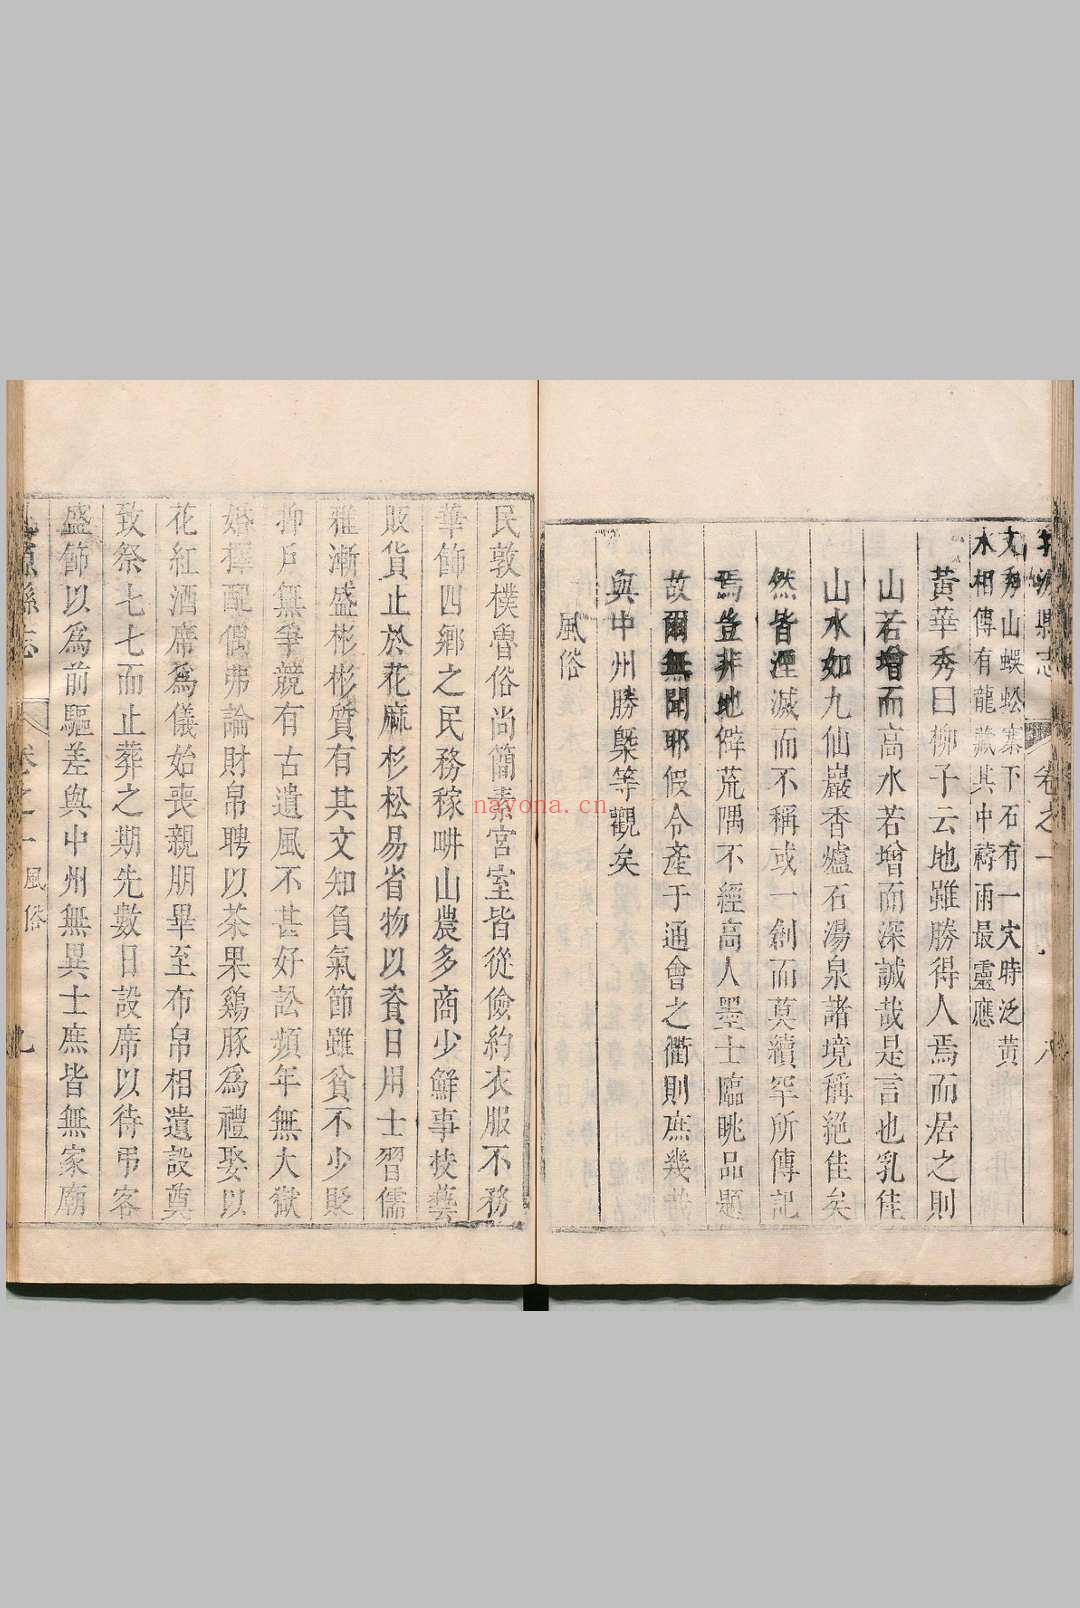 文秀山蜈蚣寨下石有一穴時泛黃
水相傳有龍藏其中禱雨最靈應
黃華秀曰柳子云地雖勝得人焉而居之則
山若增而高水若增而深誠哉是言也乳徍
山水如九仙巖香爐石湯泉諸境稱絕佳矣
然皆湮滅而不稱或一創而莫續罕所傳記
焉豈非地僻荒隅不經高人墨士臨眺品題
故爾無聞耶假令產于通會之衢則庶幾
與中州勝槩等觀矣
風俗
民敦樸魯俗尚簡素宮室皆從儉約衣服不務
華飾四鄉之民務稼畊山農多商少鮮事技藝
販貨止於花麻杉松易省物以資日用士習儒
雅漸盛彬彬質有其文知負氣節雖貧不少貶
抑戶無爭競有古遺風不甚好訟頻年無大獄
婚擇配偶弗論財帛聘以茶果鷄豚為禮娶以
花紅酒席為儀始喪親朋畢至布帛相遺設奠
致祭七七而止葬之期先數日設席以待弔客
盛飾以為前驅差與中州無異士庶皆無家廟
縣志 卷之一 風俗 九
nayona.cn